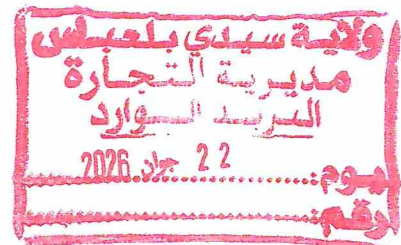 ولاية سيدي بلعباس
مديرية التجارة
البريد الوارد
يوم: 22 جوان 2026
رقم: